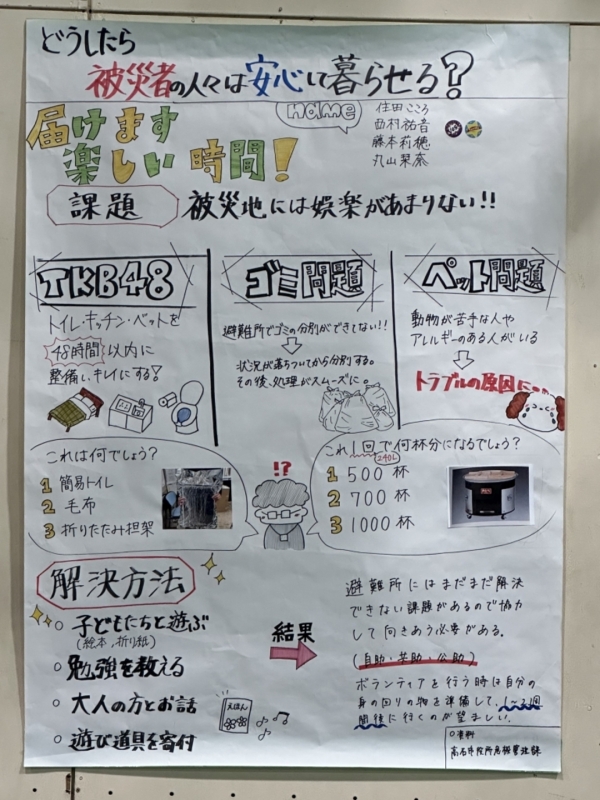 どうしたら
被災者の人々は安心して暮らせる?
届けます
楽しい時間!
name
住田こころ
西村祐音
藤本莉穂
丸山栞奈
課題
被災地には娯楽があまりない!!
TKB48
トイレ・キッチン・ベットを
48時間以内に
整備し、キレイにする!
ゴミ問題
避難所でゴミの分別ができてない!!
状況が落ちついてから分別する。
その後、処理がスムーズに。
ペット問題
動物が苦手な人や
アレルギーのある人がいる
トラブルの原因に。。
これは何でしょう?
1 簡易トイレ
2 毛布
3 折りたたみ担架
!?
これ1回で何杯分になるでしょう?
240L
1 500杯
2 700杯
3 1000杯
解決方法
子どもたちと遊ぶ
(絵本、折り紙)
勉強を教える
大人の方とお話
遊び道具を寄付
えほん
結果
避難所にはまだまだ解決
できない課題があるので協力
して向きあう必要がある。
(自助・共助・公助)
ボランティアを行う時は自分の
身の回りの物を準備して、1~2週
間後に行くのが望ましい。
○資料